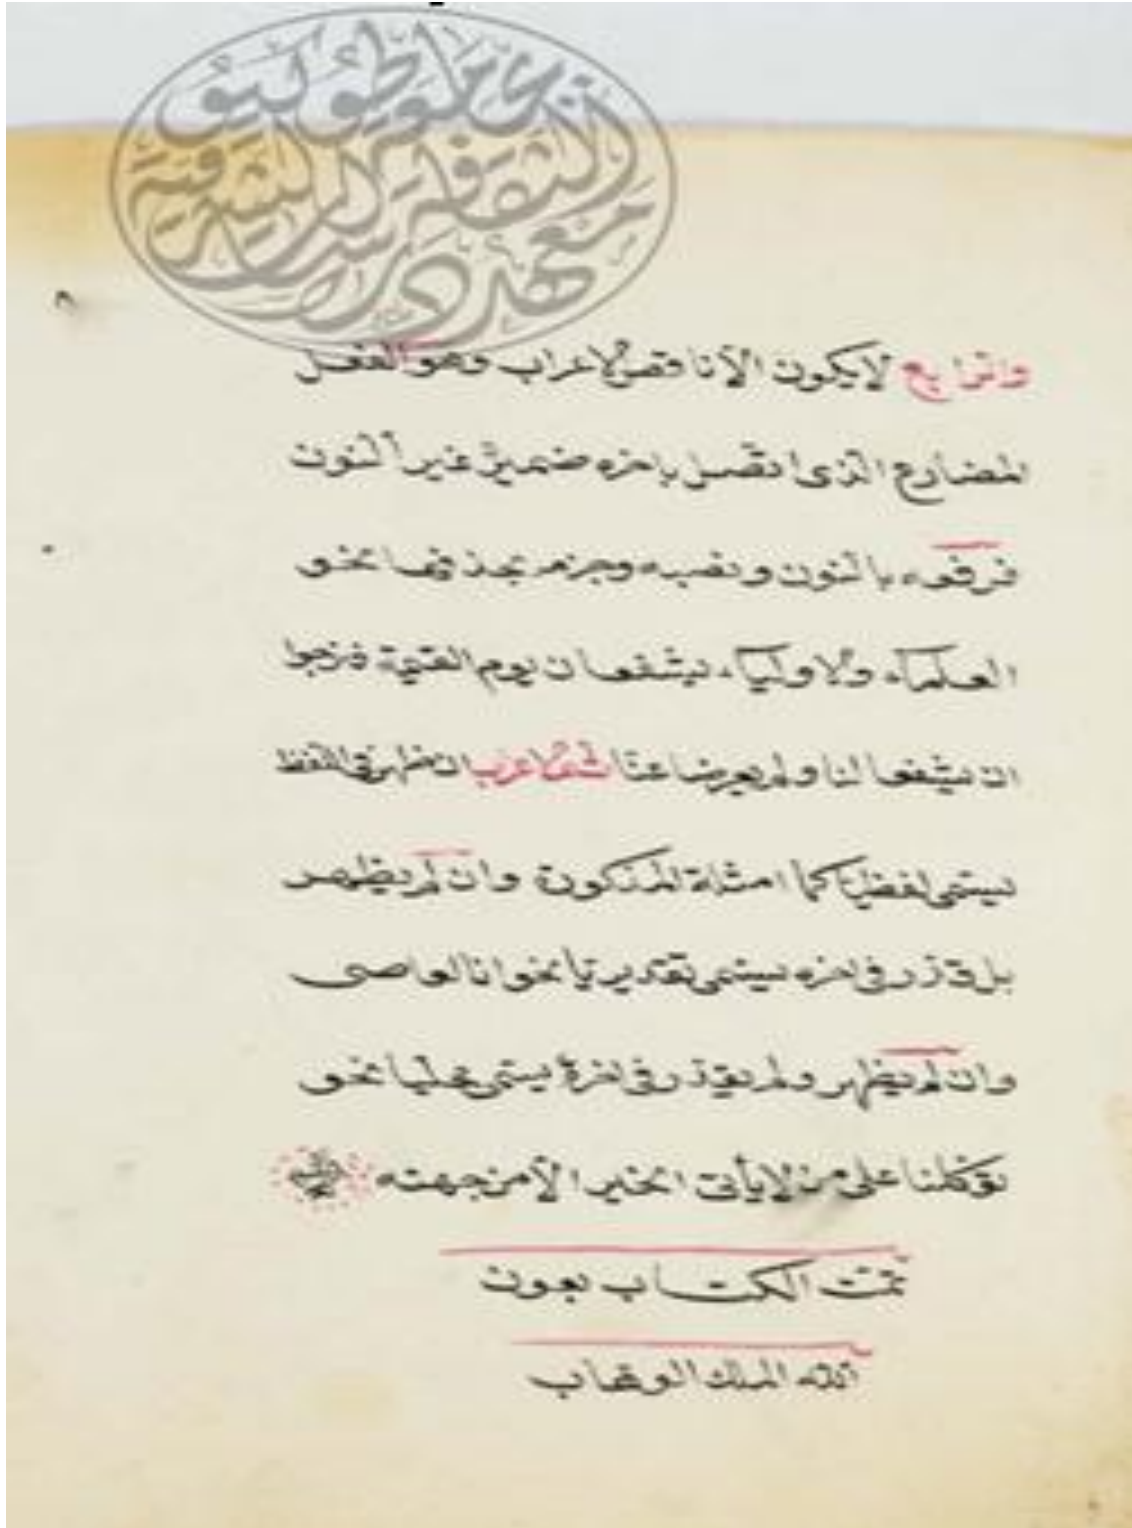 والرابع لا يكون الا ناقص الاعراب وهو الفعل
المضارع الذي اتصل باخره ضمير غير النون
فرفعه بالنون ونصبه وجزمه بحذفها نحو
العلماء والاولياء يشفعان يوم القيمة فنرجوا
ان يشفعا لنا ولم يعرضا عنا ثم الاعراب ان ظهر في اللفظ
يسمى لفظيا كما امثلة المذكورة وان لم يظهر
بل قدر في اخره يسمى تقديريا نحو انا العاصى
وان لم يظهر ولم يقدر في اخره يسمى محليا نحو
توكلنا على من لا يأتى الخير الا من جهته
تمت الكتاب بعون
الله الملك الوهاب